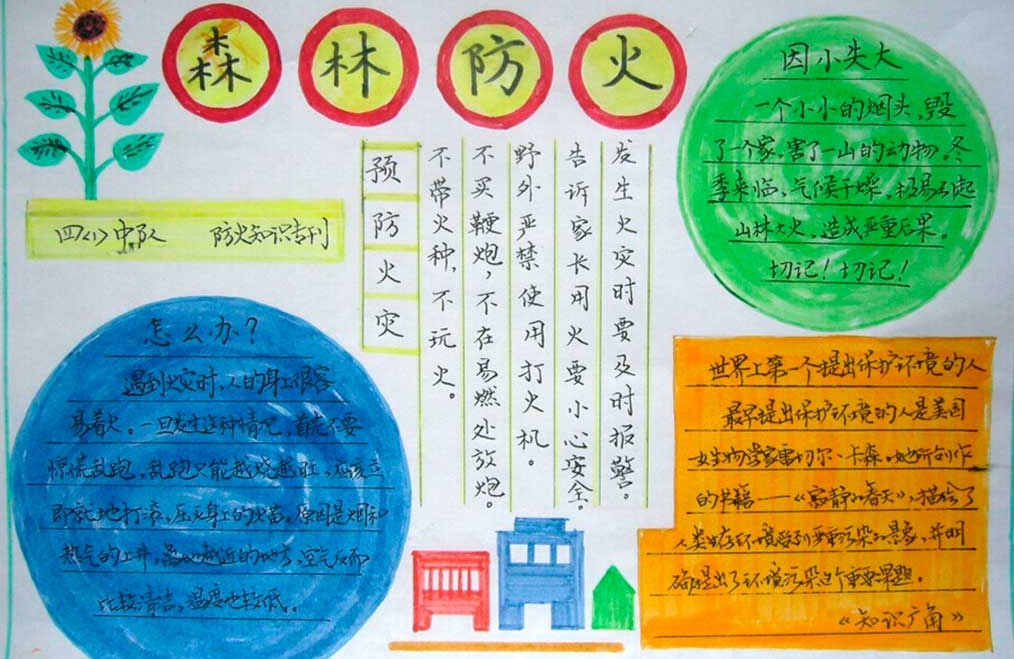 森林防火
四(1)中队 防火知识专刊
预防火灾
不带火种,不玩火。
不买鞭炮,不在易燃处放炮。
野外严禁使用打火机。
告诉家长用火要小心安全。
发生火灾时要及时报警。
因小失大
一个小小的烟头,毁
了一个家,害了一山的动物。冬
季来临,气候干燥,极易引起
山林大火,造成严重后果。
切记!切记!
怎么办?
遇到火灾时,人的身上很容
易着火。一旦发生这种情况,首先不要
惊慌乱跑,乱跑只能越烧越旺,应该立
即就地打滚,压灭身上的火苗。原因是烟和
热气的上升,离地越近的地方,空气反而
比较清洁,温度也较低。
世界上第一个提出保护环境的人
最早提出保护环境的人是美国
女生物学家雷切尔·卡森。她所创作
的书籍——《寂静的春天》,描绘了
人类生存环境受到严重污染的景象,并明
确提出了环境污染这个重要课题。
《知识广角》